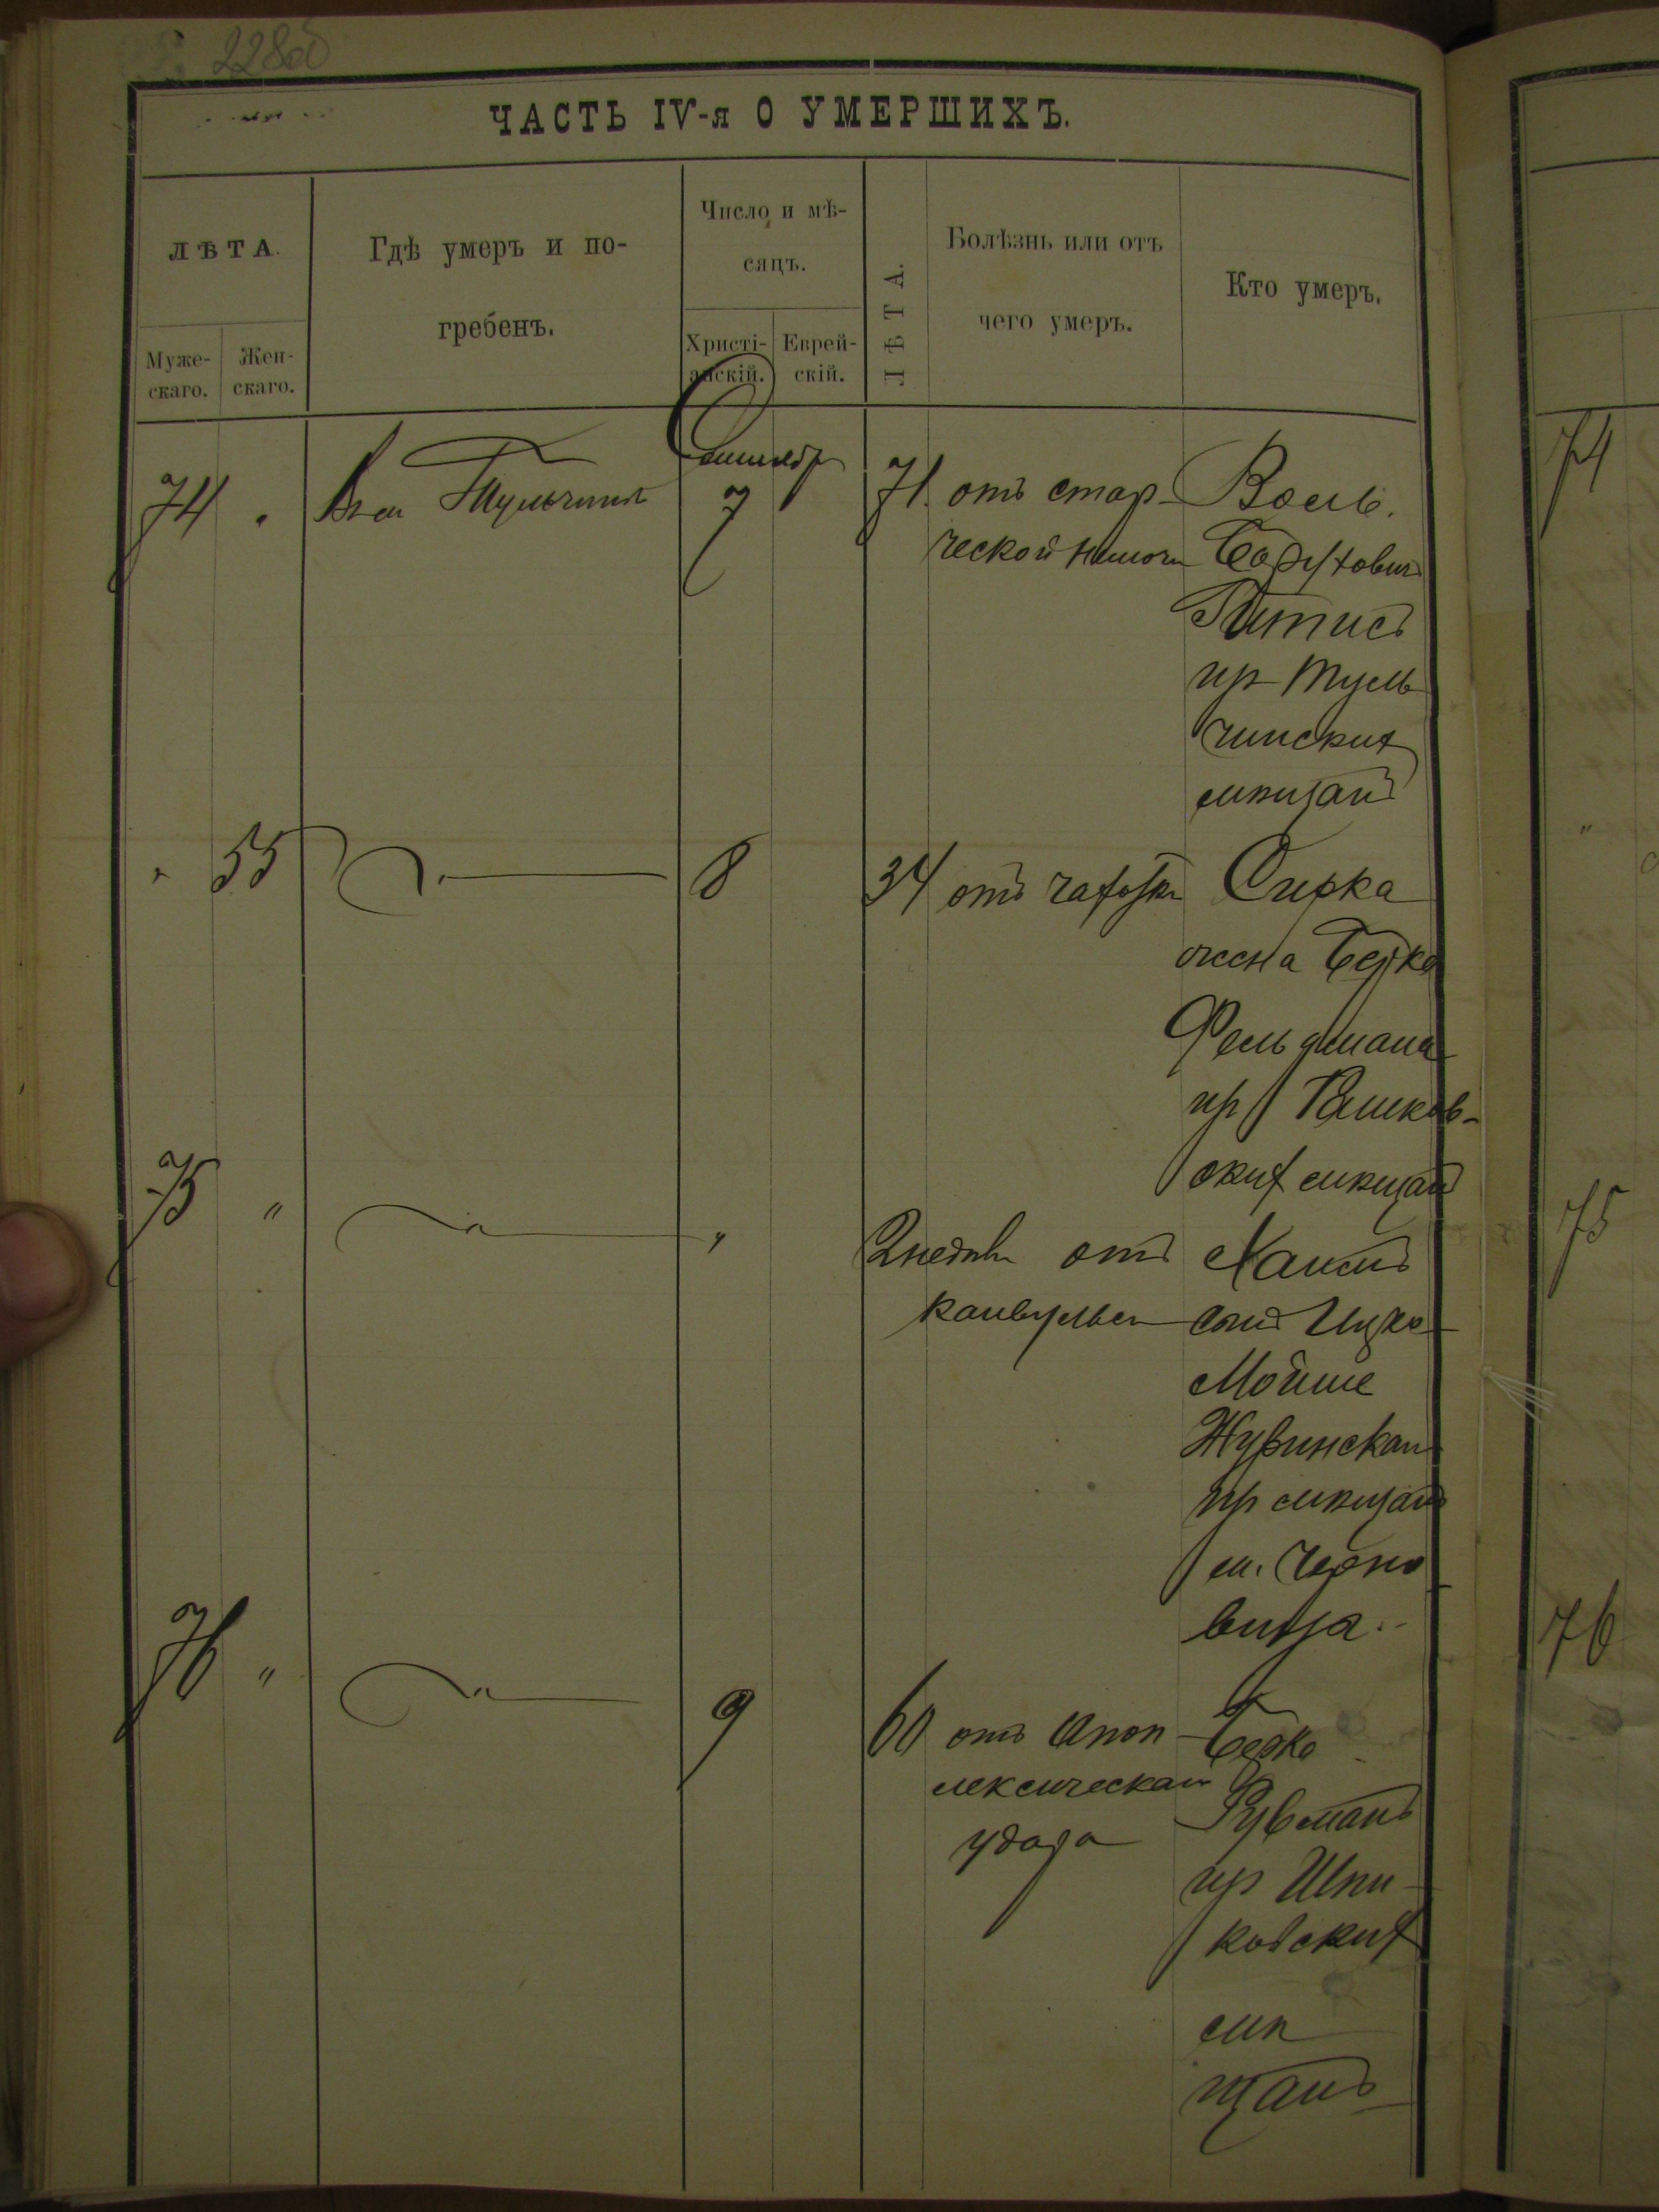 228об
ЧАСТЬ IV-я О УМЕРШИХЪ.
ЛѢТА.
Муже-
скаго.
Жен-
скаго.
Гдѣ умеръ и по-
гребенъ.
Число и мѣ-
сяцъ.
Христі-
анскій.
Еврей-
скій.
ЛѢТА.
Болѣзнь или отъ
чего умеръ.
Кто умеръ.
Сентябр
74 " Въ м Тульчинѣ 7 71 отъ стар-
ческой немочи
Воль
Борухович
Питисъ
из Туль
чинских
мѣщанъ
" 55 " 8 34 отъ чахотки
Сирка
жена Берка
Фельдмана
из Рашков-
ских мѣщанъ
75 " " " 2 недѣли отъ
конвульсіи
Хаимъ
сынъ Ицко
Мойше
Журинскаи
из мѣщанъ
м. Черно
вица
76 " " 9 60 отъ апоп-
лексическаи
удара
Берко
Рувманъ
из Шпи-
ковских
мѣ
щанъ
74
75
76